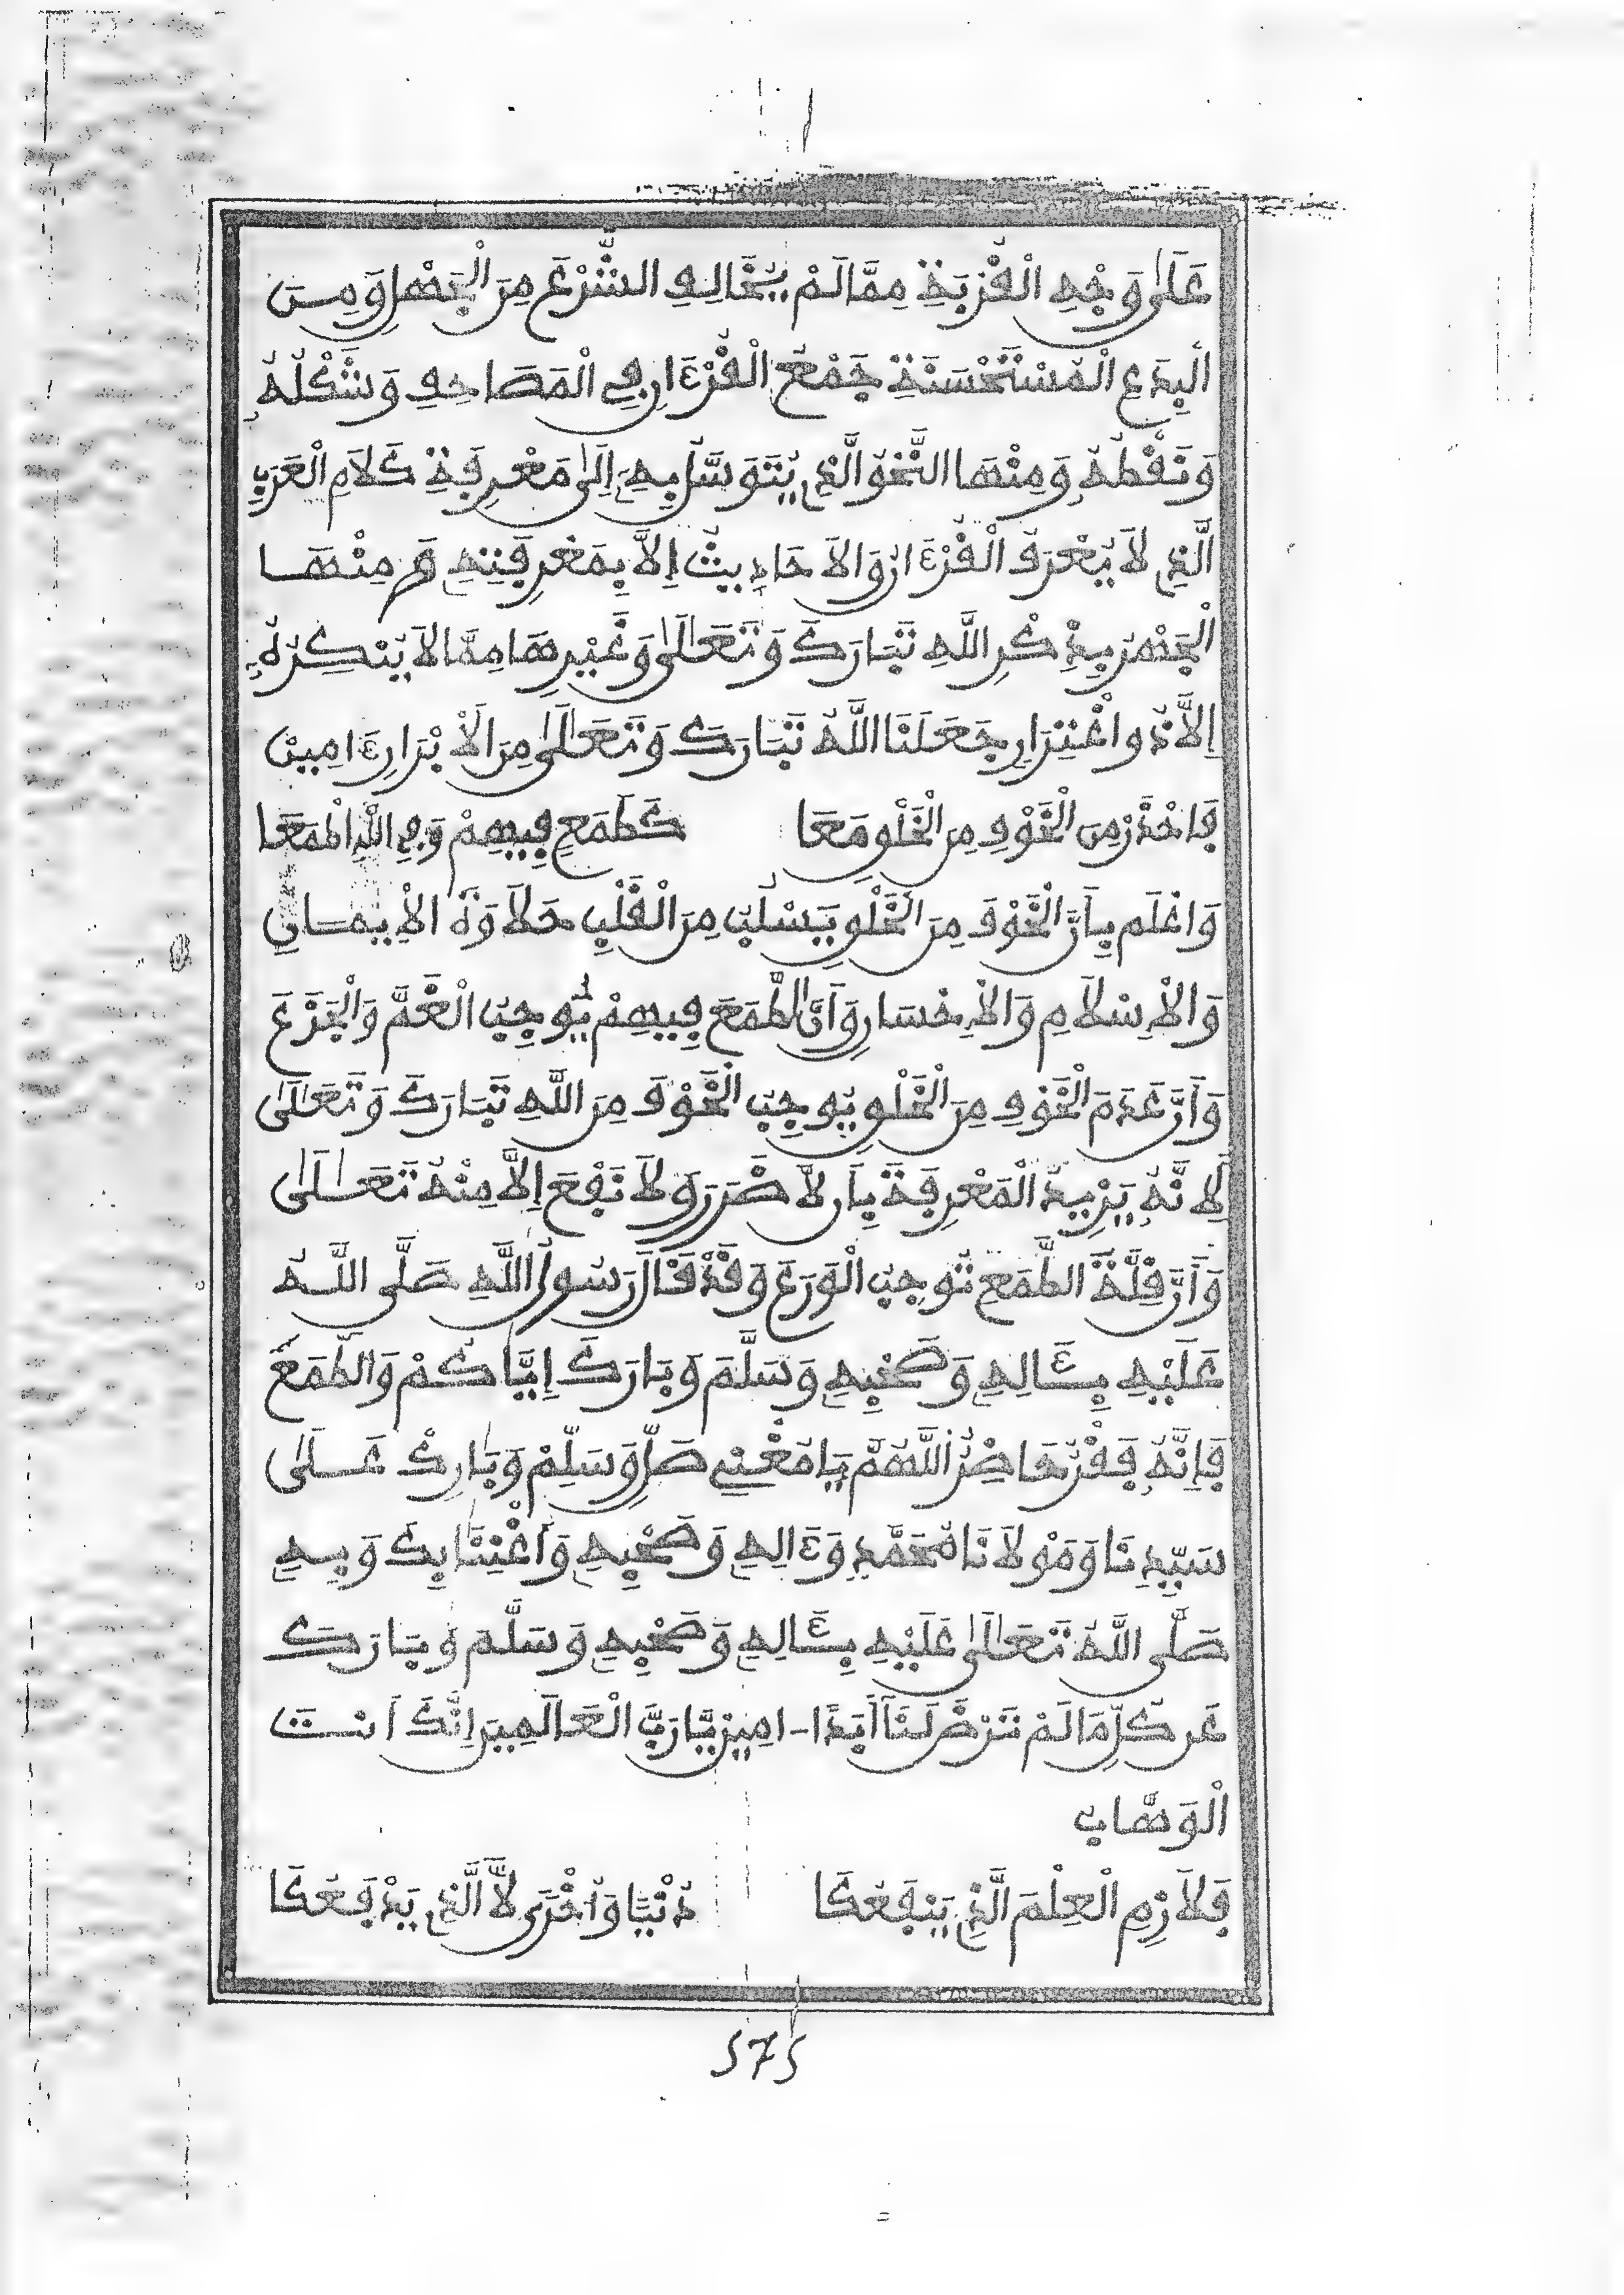 عَلَىٰ وَجْهِ الْقُرْبَةِ مِمَّا لَمْ يُخَالِفِ الشَّرْعَ مِنَ الْجَهْلِ وَمِنَ
الْبِدَعِ الْمُسْتَحْسَنَةِ جَمْعُ الْقُرْءَانِ فِي الْمَصَاحِفِ وَشَكْلُهُ
وَنَقْطُهُ وَمِنْهَا النَّحْوُ الَّذِي يُتَوَسَّلُ بِهِ إِلَىٰ مَعْرِفَةِ كَلَامِ الْعَرَبِ
الَّذِي لَا يُعْرَفُ الْقُرْءَانُ وَالَاحَادِيثُ إِلَّا بِمَعْرِفَتِهِ وَمِنْهَا
الْجَهْرُ بِذِكْرِ اللَّهِ تَبَارَكَ وَتَعَالَىٰ وَغَيْرِهَا مِمَّا لَا يُنْكِرُهُ
إِلَّا ذُو اغْتِرَارٍ جَعَلَنَا اللَّهُ تَبَارَكَ وَتَعَالَىٰ مِنَ الَابْرَارِ ءَامِينْ
فَاحْذَرْ مِنَ الْخَوْفِ مِنَ الْخَلْقِ مَعَا كَطَمَعٍ فِيهِمْ وَفِي اللَّهِ اطْمَعَا
وَاعْلَم بِأَنَّ الْخَوْفَ مِنَ الْخَلْقِ يَسْلُبُ مِنَ الْقَلْبِ حَلَاوَةَ الِايمَانِ
وَالِاسْلَامِ وَالِاحْسَانِ وَأَنَّ الطَّمَعَ فِيهِمْ يُوجِبُ الْغَمَّ وَالْجَزَعَ
وَأَنَّ عَدَمَ الْخَوْفِ مِنَ الْخَلْقِ يُوجِبُ الْخَوْفَ مِنَ اللَّهِ تَبَارَكَ وَتَعَالَىٰ
لِأَنَّهُ يَزِيدُ الْمَعْرِفَةَ بِأَن لَّا ضَرَرَ وَلَا نَفْعَ إِلَّا مِنْهُ تَعَالَىٰ
وَأَنَّ قِلَّةَ الطَّمَعِ تُوجِبُ الْوَرَعَ وَقَدْ قَالَ رَسُولُ اللَّهِ صَلَّى اللَّهُ
عَلَيْهِ بِـَٔالِهِ وَصَحْبِهِ وَسَلَّمَ وَبَارَكَ إِيَّاكُمْ وَالطَّمَعَ
فَإِنَّهُ فَقْرٌ حَاضِرٌ اللَّهُمَّ يَا مُغْنِي صَلِّ وَسَلِّمْ وَبَارِكْ عَلَىٰ
سَيِّدِنَا وَمَوْلَانَا مُحَمَّدٍ وَءَالِهِ وَصَحْبِهِ وَأَغْنِنَا بِكَ وَبِهِ
صَلَّى اللَّهُ تَعَالَىٰ عَلَيْهِ بِـَٔالِهِ وَصَحْبِهِ وَسَلَّمَ وَبَارَكَ
عَن كُلِّ مَا لَمْ تَرْضَ لَنَا أَبَدًا - امِينْ يَا رَبَّ الْعَالَمِينَ إِنَّكَ أَنْتَ
الْوَهَّابُ
فَلَازِمِ الْعِلْمَ الَّذِي يَنْفَعُكَا دُنْيَا وَأُخْرَى لَا الَّذِي يَدْفَعُكَا
575